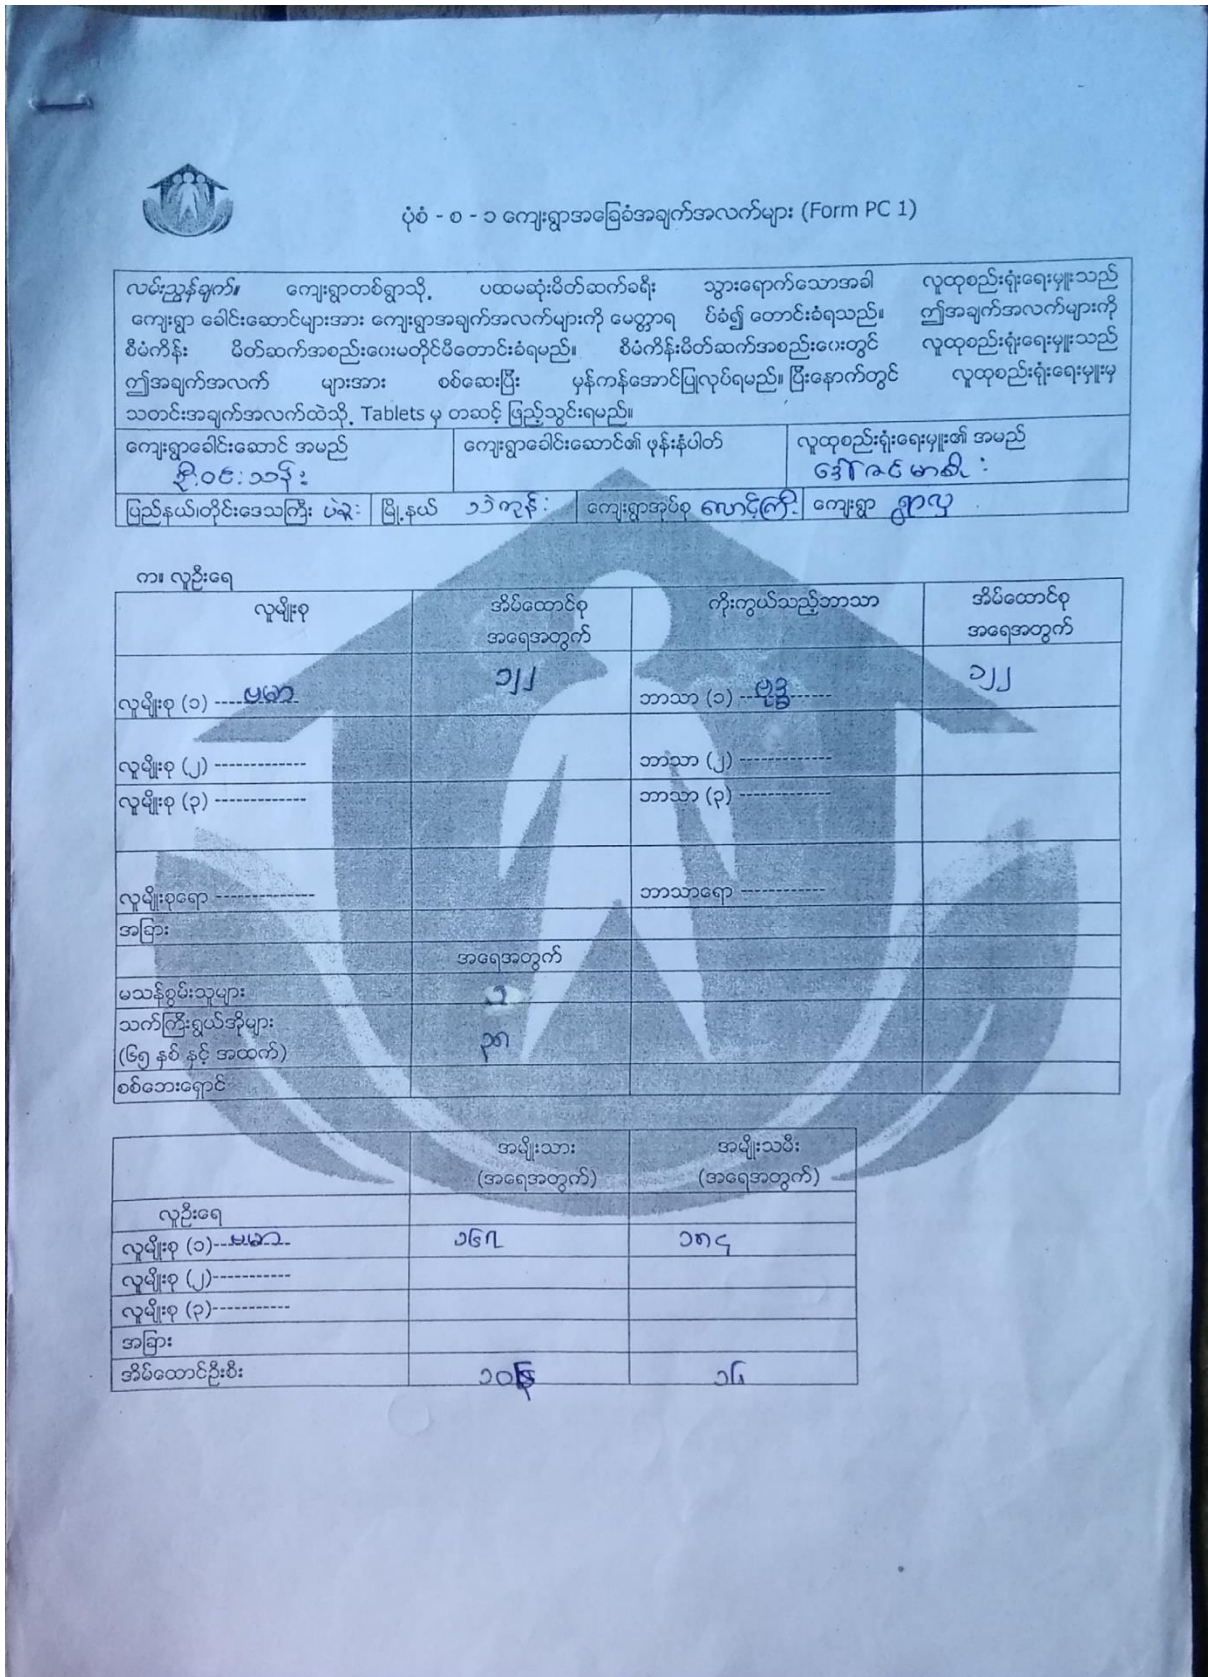 ပုံစံ - စ - ၁ ကျေးရွာအခြေခံအချက်အလက်များ (Form PC 1)
လမ်းညွှန်ချက်။ ကျေးရွာတစ်ရွာသို့ ပထမဆုံးမိတ်ဆက်ခရီး သွားရောက်သောအခါ လူထုစည်းရုံးရေးမှူးသည်
ကျေးရွာ ခေါင်းဆောင်များအား ကျေးရွာအချက်အလက်များကို မေတ္တာရ ပ်ခံ၍ တောင်းခံရသည်။ ဤအချက်အလက်များကို
စီမံကိန်း မိတ်ဆက်အစည်းဝေးမတိုင်မီတောင်းခံရမည်။ စီမံကိန်းမိတ်ဆက်အစည်းဝေးတွင် လူထုစည်းရုံးရေးမှူးသည်
ဤအချက်အလက် များအား စစ်ဆေးပြီး မှန်ကန်အောင်ပြုလုပ်ရမည်။ ပြီးနောက်တွင် လူထုစည်းရုံးရေးမှူးမှ
သတင်းအချက်အလက်ထဲသို့ Tablets မှ တဆင့် ဖြည့်သွင်းရမည်။
ကျေးရွာခေါင်းဆောင် အမည် ကျေးရွာခေါင်းဆောင်၏ ဖုန်းနံပါတ် လူထုစည်းရုံးရေးမှူး၏ အမည်
ဦးဝင်းသန်း ဒေါ်ဇင်မာဆိုး
ပြည်နယ်၊တိုင်းဒေသကြီး ပဲခူး မြို့နယ် သဲကုန်း ကျေးရွာအုပ်စု လောင့်ကြီး ကျေးရွာ ရွာလှ
က။ လူဦးရေ
လူမျိုးစု အိမ်ထောင်စု အရေအတွက် ကိုးကွယ်သည့်ဘာသာ အိမ်ထောင်စု အရေအတွက်
လူမျိုးစု (၁) ----ဗမာ-- ၁၂၂ ဘာသာ (၁) --ဗုဒ္ဓ------ ၁၂၂
လူမျိုးစု (၂) ------------- ဘာသာ (၂) -------------
လူမျိုးစု (၃) ------------- ဘာသာ (၃) -------------
လူမျိုးစုရော -------------- ဘာသာရော ------------
အခြား
အရေအတွက်
မသန်စွမ်းသူများ
သက်ကြီးရွယ်အိုများ
(၆၅ နှစ် နှင့် အထက်) ၃၈
စစ်ဘေးရှောင်
အမျိုးသား အမျိုးသမီး
(အရေအတွက်) (အရေအတွက်)
လူဦးရေ
လူမျိုးစု (၁)--ဗမာ-- ၁၆၇ ၁၈၄
လူမျိုးစု (၂)-----------
လူမျိုးစု (၃)-----------
အခြား
အိမ်ထောင်ဦးစီး ၁၆